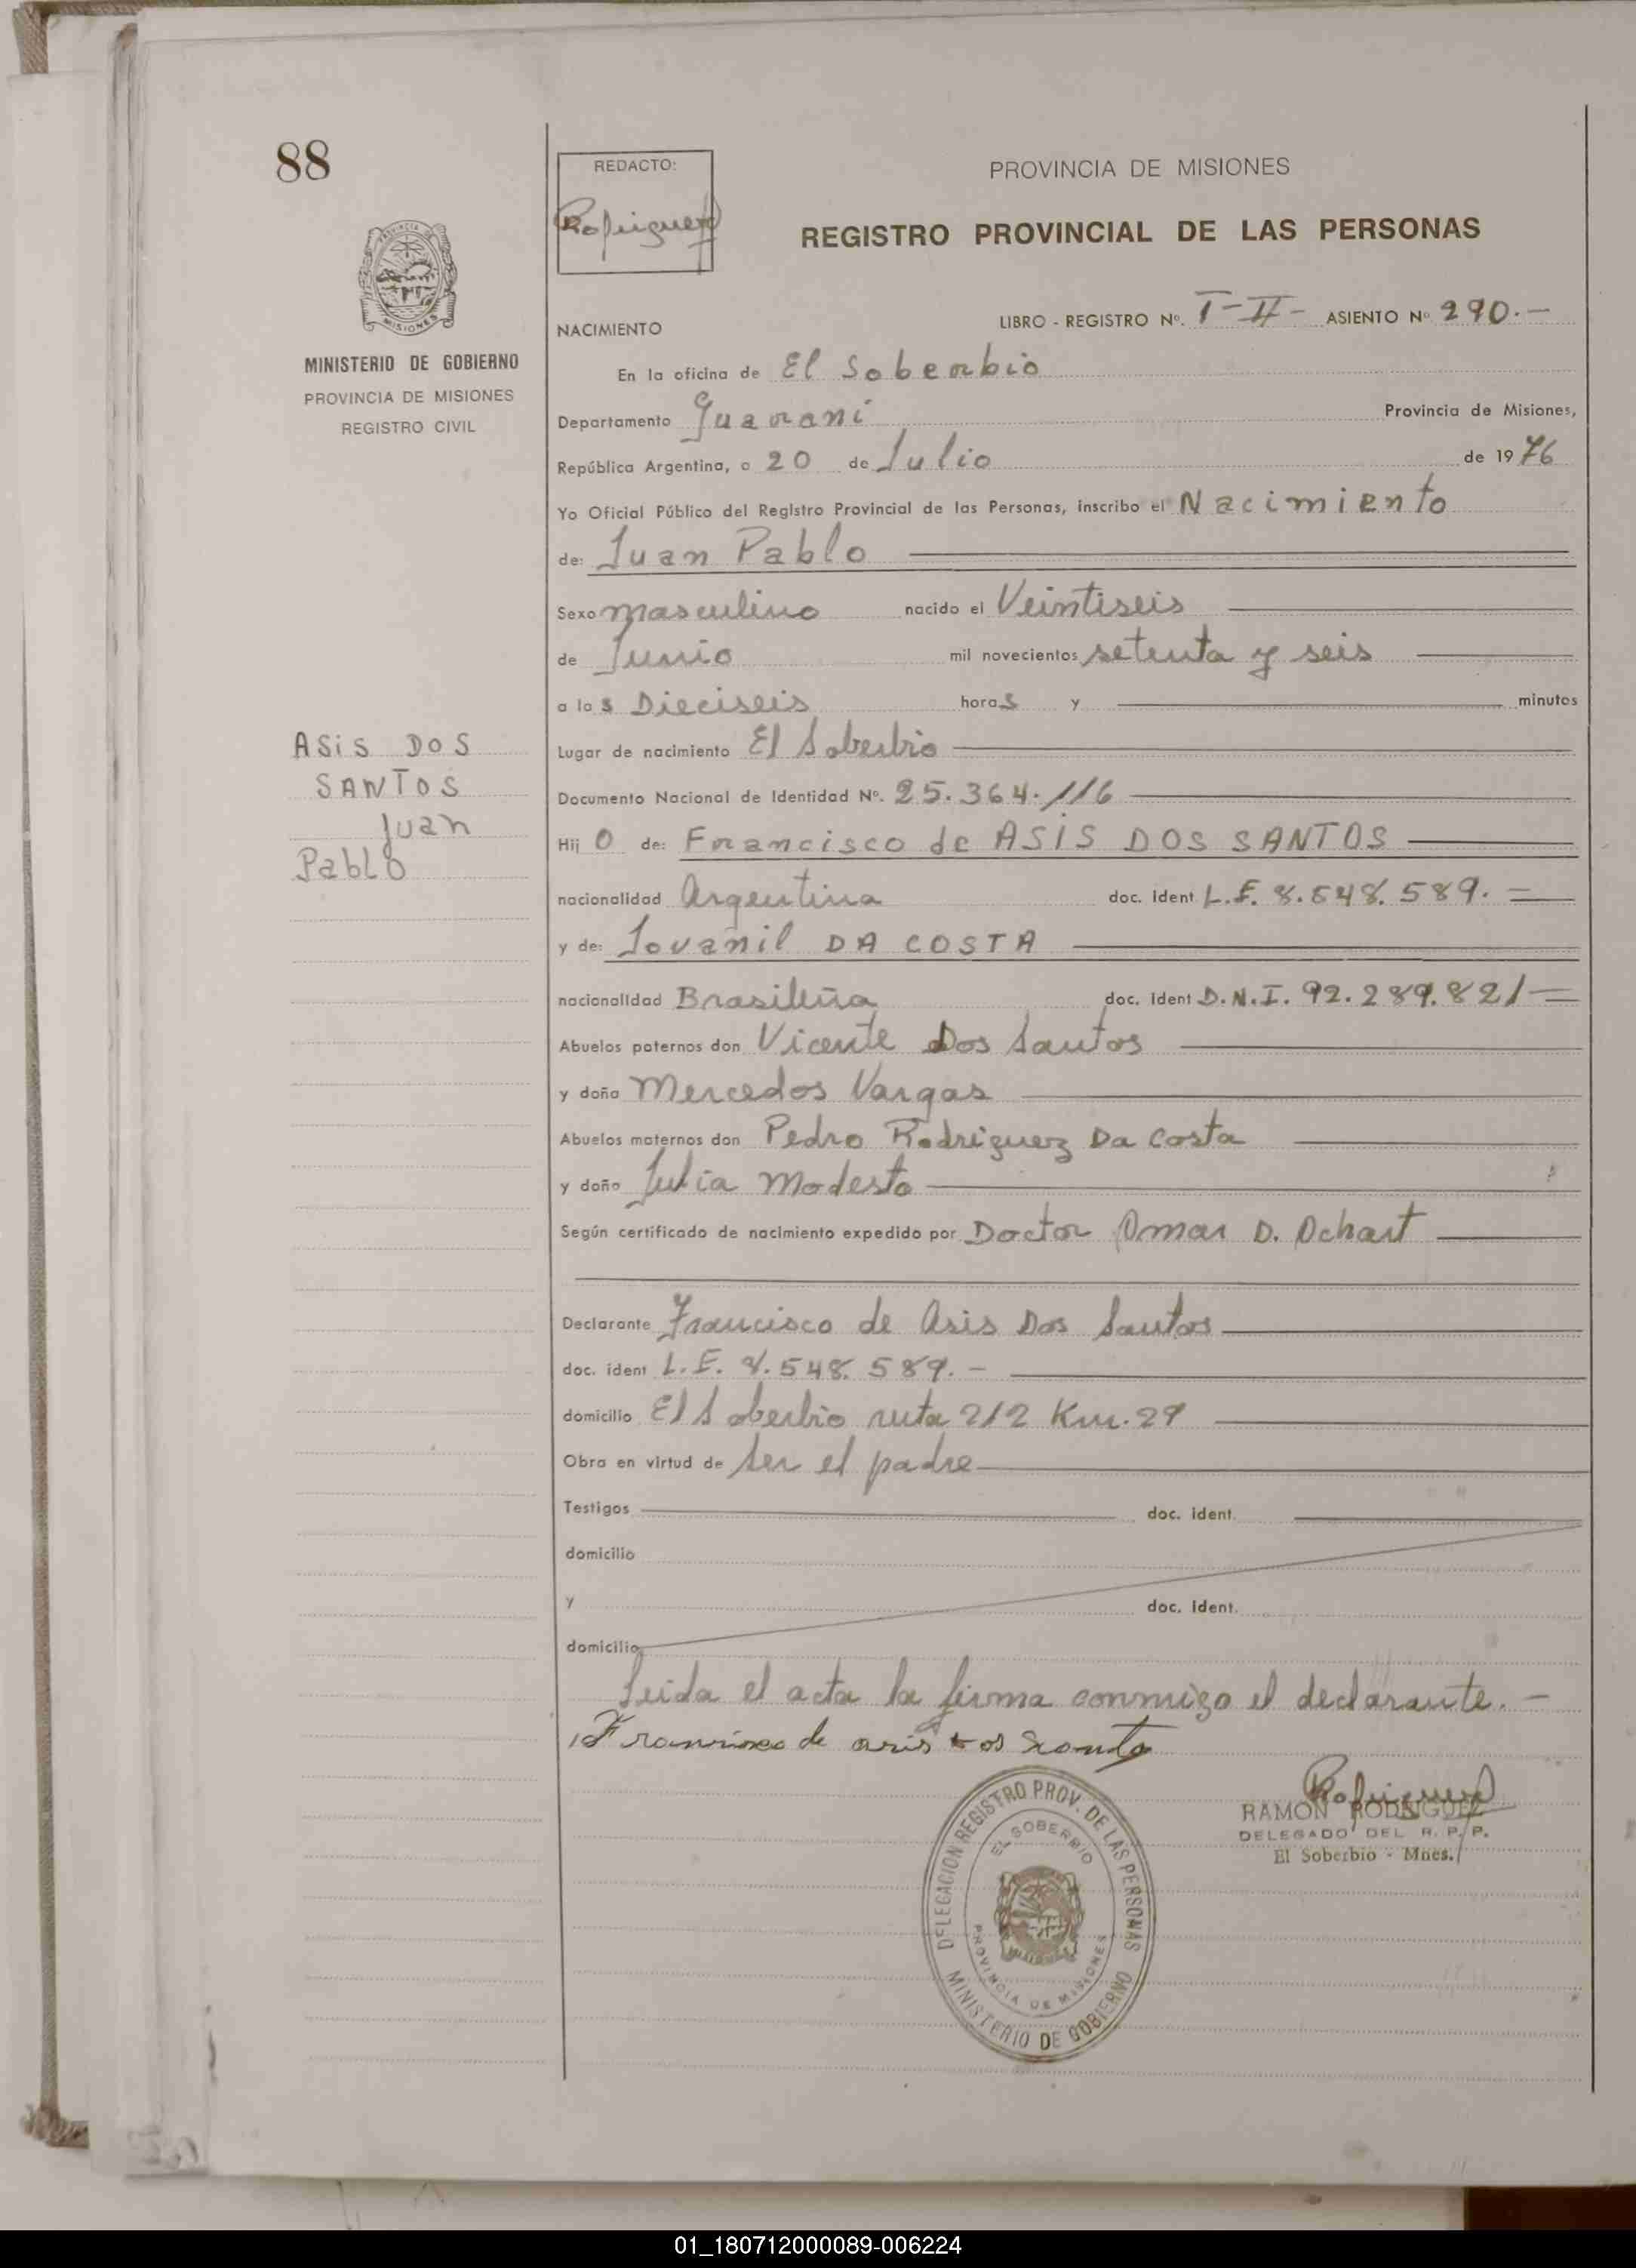 88
REDACTO:
Rodriguez
PROVINCIA DE MISIONES
REGISTRO PROVINCIAL DE LAS PERSONAS
MISIONES
MINISTERIO DE GOBIERNO
PROVINCIA DE MISIONES
REGISTRO CIVIL
NACIMIENTO
LIBRO - REGISTRO Nº. I-II- ASIENTO Nº 290.-
En la oficina de El Soberbio
Departamento Guarani Provincia de Misiones,
República Argentina, a 20 de Julio de 1976
Yo Oficial Público del Registro Provincial de las Personas, inscribo el Nacimiento
de: Juan Pablo
Sexo masculino nacido el Veintiseis
de Junio mil novecientos setenta y seis
a las Dieciseis horas y minutos
Lugar de nacimiento El Soberbio
Documento Nacional de Identidad Nº. 25.364.116
Hijo de: Francisco de ASIS DOS SANTOS
nacionalidad Argentina doc. ident L.E. 8.548.589.=
y de: Jovanil DA COSTA
nacionalidad Brasileña doc. ident D.N.I. 92.289.821=
Abuelos paternos don Vicente Dos Santos
y doña Mercedos Vargas
Abuelos maternos don Pedro Rodriguez Da Costa
y doña Julia Modesto
Según certificado de nacimiento expedido por Doctor Omar D. Ochart
Declarante Francisco de Asis Dos Santos
doc. ident L.E. 8.548.589.-
domicilio El Soberbio ruta 212 Km. 29
Obra en virtud de ser el padre
Testigos doc. ident.
domicilio
y doc. ident.
domicilio
Leida el acta la firma conmigo el declarante.-
Francisco de asis dos Santo
ASIS DOS
SANTOS
Juan
Pablo
DELEGACION REGISTRO PROV. DE LAS PERSONAS
EL SOBERBIO
PROVINCIA DE MISIONES
MINISTERIO DE GOBIERNO
Rodriguez
RAMON RODRIGUEZ
DELEGADO DEL R. P. P.
El Soberbio - Mnes.
01_180712000089-006224